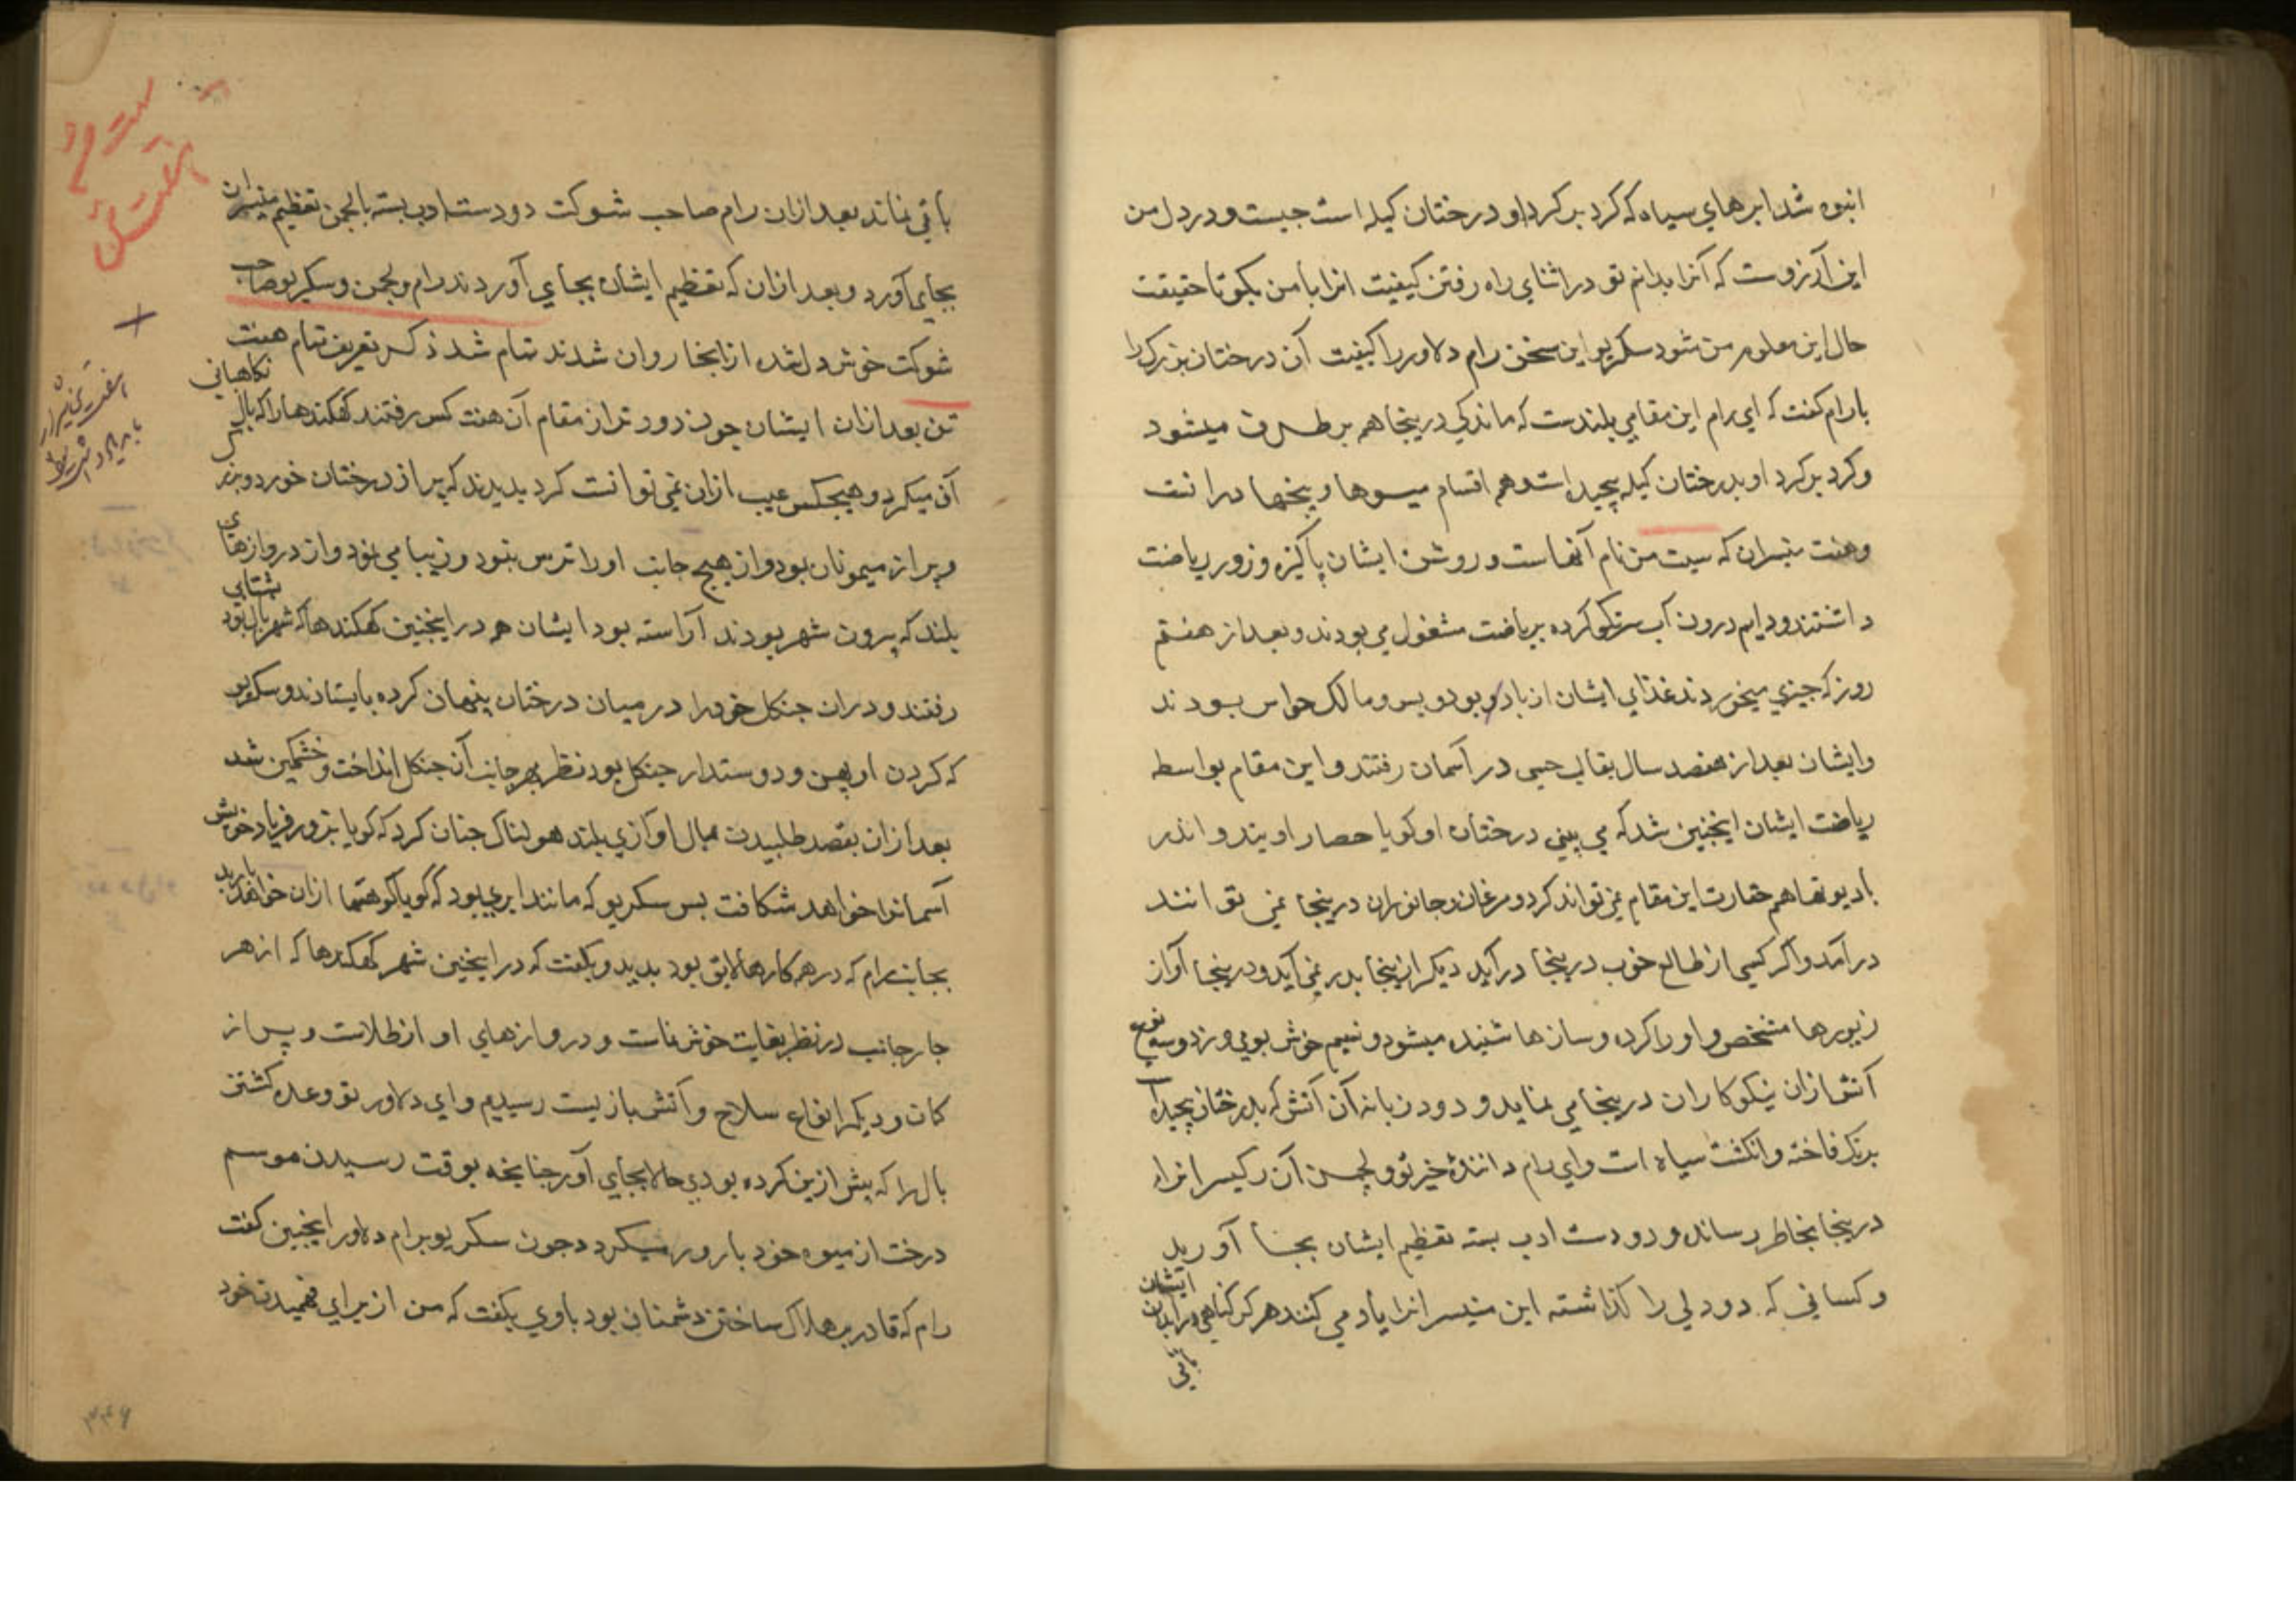 انبوه شد ابرهاي سياه كه كرد بر كرد او درختان كيله است چيست و در دل من
اين آرزوست كه آنرا بدانم تو در اثناي راه رفتن كيفيت انرا با من بكو تا حقيقت
حال اين معلوم من شود سكريو اين سخن رام دلاور را كيفيت آن درختان بزرك را
با رام كفت كه اي رام اين مقامي بلندست كه ماندكي درينجا هم برطرف ميشود
و كرد بر كرد او بدرختان كيله پيچيده است و هم اقسام ميوها و بيخها دران است
و هفت منيسران كه سپت من نام آنهاست و روشن ايشان پاكيزه و زور رياضت
داشتند و دايم درون آب سرنكو كرده برياضت مشغول مي بودند و بعد از هفتم
روز كه چيزي ميخوردند غذاي ايشان از باد بود و بس و مالك حواس بودند
و ايشان بعد از هفصد سال بقالب جسمي در آسمان رفتند و اين مقام بواسطه
رياضت ايشان اينچنين شد كه مي بيني درختان او كويا حصار اويند و اندر
با ديوتها هم حقارت اين مقام نمي تواند كرد و مرغان و جانوران درينجا نمي توانند
درآمد و اكر كسي از طالع خوب درينجا درآيد ديكر ازينجا بدر نمي آيد و درينجا آواز
زيورها مشخص و اورا كرده و سازها شنيده ميشود و نسيم خوش بوي ميوزد و سه نوع
آتش ازان نيكوكاران درينجا مي نمايد و دود زبانه آن آتش كه بدرختان پيچيده است
برنك فاخته و انكشت سياه است و اي رام داننده خير تو و لچمن آن ركيسرانرا
درينجا بخاطر رساند و دو دست ادب بسته تعظيم ايشان بجا آوريد
و كساني كه دو دلي را كذاشته اين منيسرانرا ياد مي كنند هركز كناهي در ابدان ايشان
باقي
باقي نماند بعد ازان رام صاحب شوكت دو دست ادب بسته با لچمن تعظيم منيسران
بجاي آورد و بعد ازان كه تعظيم ايشان بجاي آوردند رام و لچمن و سكريو صاحب
شوكت خوش دل شده ازانجا روان شدند تمام شد ذكر تعريف مقام هفت
تن بعد ازان ايشان چون دور تر از مقام آن هفت كس رفتند كهكندها را كه بال نكاهباني
آن ميكرد و هيچكس عيب ازان نمي توانست كرد بديدند كه پر از درختان خورد و بزرك
و پر از ميمونان بود و از هيچ جانب او را ترس نبود و زيبا مي نمود و از دروازهاي
بلند كه بيرون شهر بودند آراسته بود ايشان هم در اينچنين كهكندها كه شهر بال بود بشتابي
رفتند و دران جنكل خود را در ميان درختان پنهان كرده بايستادند و سكريو
كه كردن او پهن و دوستدار جنكل بود نظر بهر جانب آن جنكل انداخت و خشمكين شد
بعد ازان بقصد طلبيدن بال آوازي بلند هولناك چنان كرد كه كويا بزور فرياد خويش
آسمانرا خواهد شكافت پس سكريو كه مانند ابري بود كه كويا كوهها ازان خواهد باريد
بجانب رام كه در همه كارها لايق بود بديد و بكفت كه در اينچنين شهر كهكندها كه از هر
چار جانب در نظر بغايت خوش نماست و دروازهاي او از طلاست و پر از
كمان و ديكر انواع سلاح و آتش بازيست رسيديم و اي دلاور تو وعده كشتن
بال را كه پيش ازين كرده بودي حالا بجاي آور چنانچه بوقت رسيدن موسم
درخت از ميوه خود بارور ميكردد چون سكريو برام دلاور اينچنين كفت
رام كه قادر بر هلاك ساختن دشمنان بود با وي بكفت كه من از براي فهميدن خود